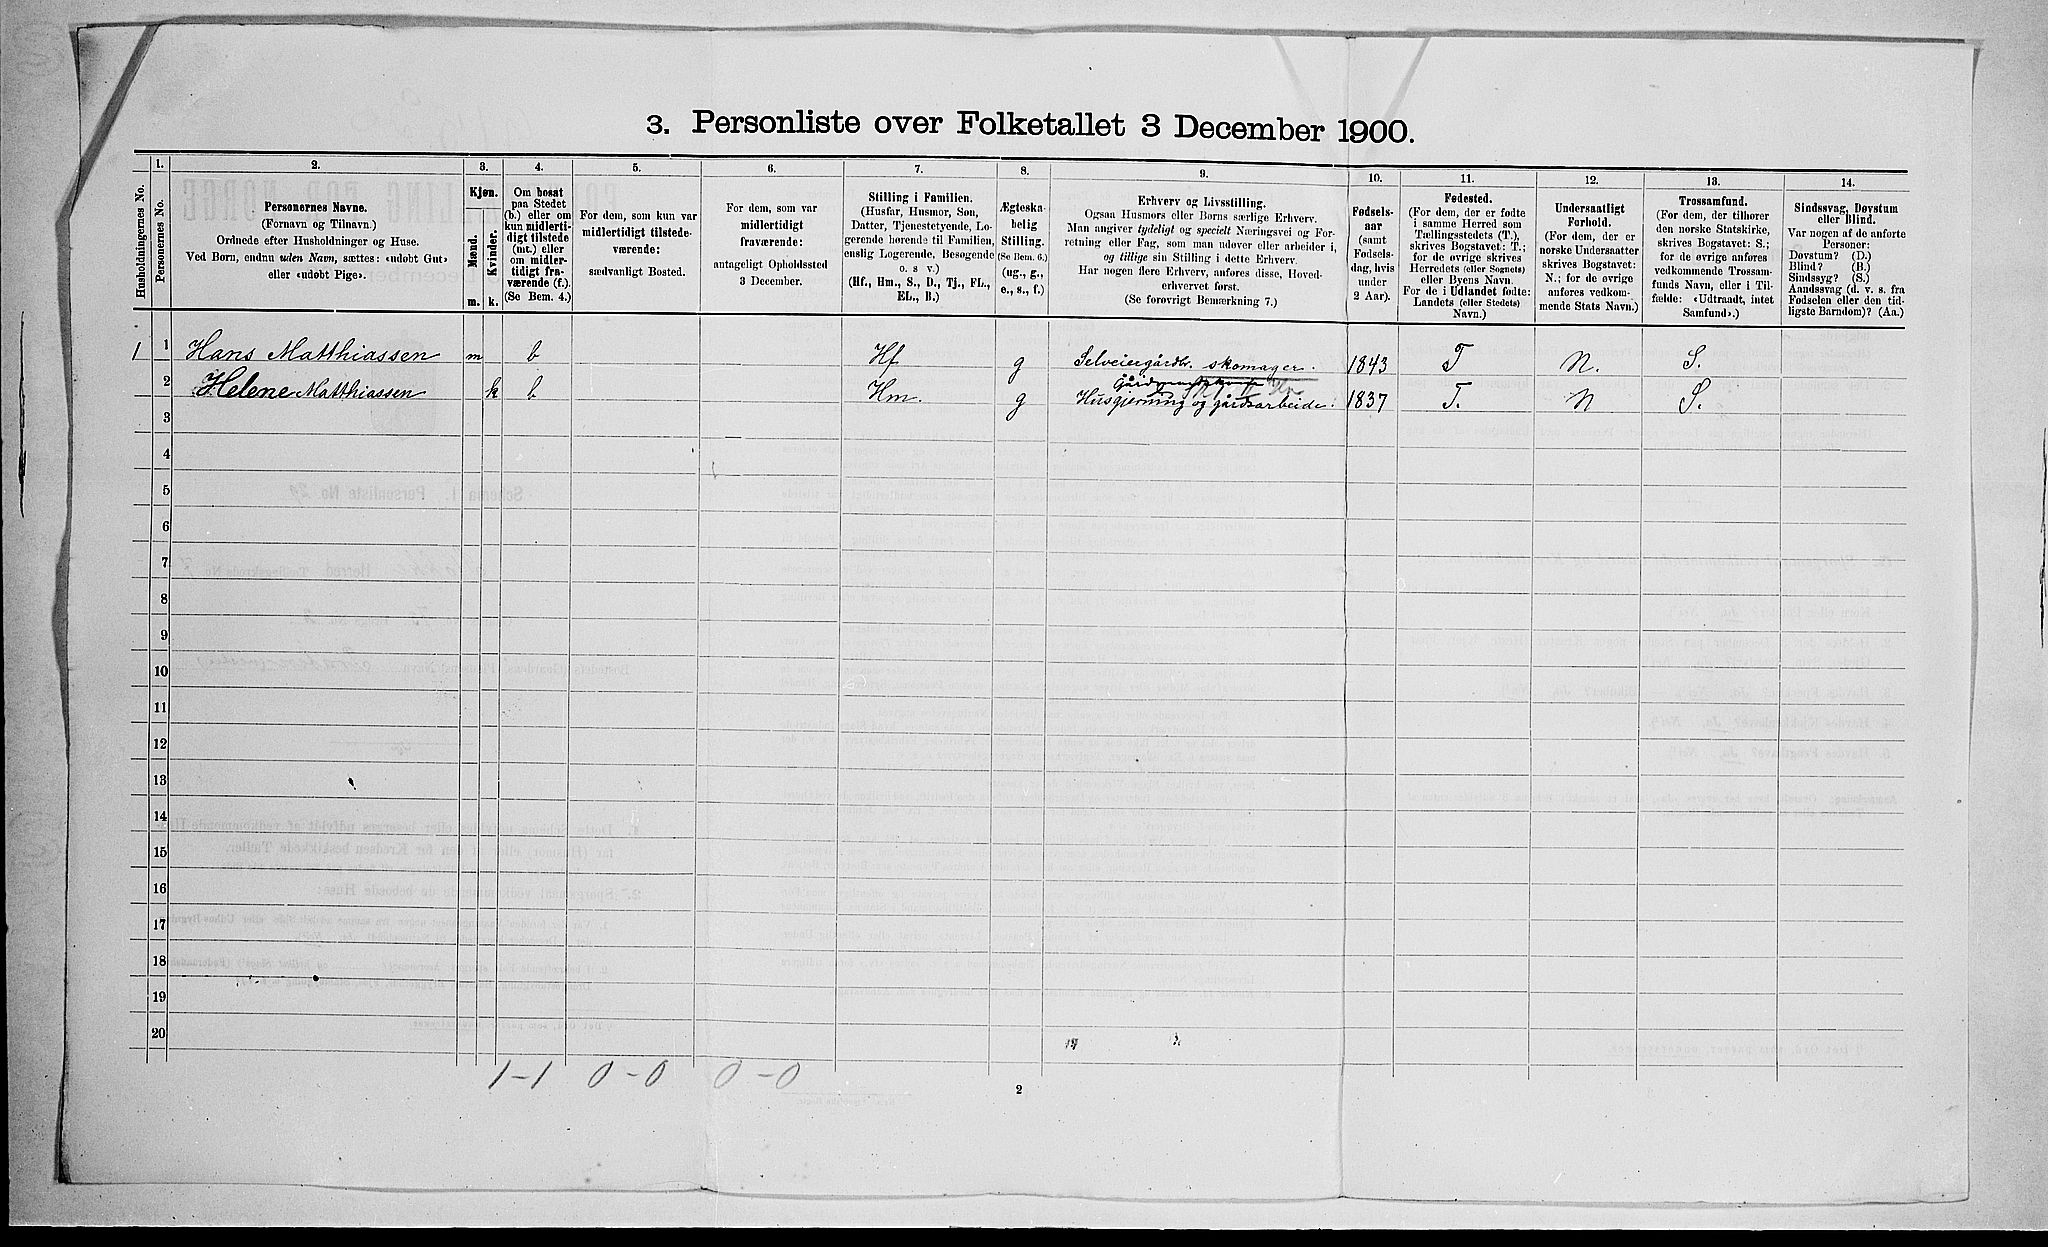 3. Personliste over Folketallet 3 December 1900.
Husholdningernes No.
1.
Personernes No.
2.
Personernes Navne.
(Fornavn og Tilnavn.)
Ordnede efter Husholdninger og Huse.
Ved Børn, endnu uden Navn, sættes: «udøbt Gut»
eller «udøbt Pige».
3.
Kjøn.
Mænd.
Kvinder.
m.
k.
4.
Om bosat
paa Stedet
(b.) eller om
kun midlerti-
digt tilstede
(mt.) eller
om midler-
tidigt fra-
værende (f.).
(Se Bem. 4.)
5.
For dem, som kun var
midlertidigt tilstede-
værende:
sædvanligt Bosted.
6.
For dem, som var
midlertidigt
fraværende:
antageligt Opholdssted
3 December.
7.
Stilling i Familien.
(Husfar, Husmor, Søn,
Datter, Tjenestetyende, Lo-
gerende hørende til Familien,
enslig Logerende, Besøgende
o. s v.)
(Hf., Hm., S., D., Tj., FL.,
EL., B.)
8.
Ægteska-
belig
Stilling.
(Se Bem. 6.)
(ug., g.,
e., s., f.)
9.
Erhverv og Livsstilling.
Ogsaa Husmors eller Børns særlige Erhverv.
Man angiver tydeligt og specielt Næringsvei og For-
retning eller Fag, som man udøver eller arbeider i,
og tillige sin Stilling i dette Erhverv.
Har nogen flere Erhverv, anføres disse, Hoved-
erhvervet først.
(Se forøvrigt Bemærkning 7.)
10.
Fødsels-
aar
(samt
Fødsels-
dag, hvis
under
2 Aar).
11.
Fødested.
(For dem, der er fødte
i samme Herred som
Tællingsstedets (T.),
skrives Bogstavet: T.;
for de øvrige skrives
Herredets (eller Sognets)
eller Byens Navn.
For de i Udlandet fødte:
Landets (eller Stedets)
Navn.)
12.
Undersaatligt
Forhold.
(For dem, der er
norske Undersaatter
skrives Bogstavet:
N.; for de øvrige
anføres vedkom-
mende Stats Navn.)
13.
Trossamfund.
(For dem, der tilhører
den norske Statskirke,
skrives Bogstavet: S.;
for de øvrige anføres
vedkommende Trossam-
funds Navn, eller i Til-
fælde: «Udtraadt, intet
Samfund».)
14.
Sindssvag, Døvstum
eller Blind.
Var nogen af de anførte
Personer:
Døvstum? (D.)
Blind? (B.)
Sindssyg? (S.)
Aandssvag (d. v. s. fra
Fødselen eller den tid-
ligste Barndom)? (Aa.)
1 1 Hans Matthiassen m b Hf g Selveiergårdbr. skomager. 1843 T N. S.
2 Helene Matthiassen k b Hm. g Husgjerning og gårdsarbeide. 1837 T. N S.
3
4
5
6
7
8
9
10
11
12
13
14
15
16
17
18
19
20
1-1 0-0 0-0
2